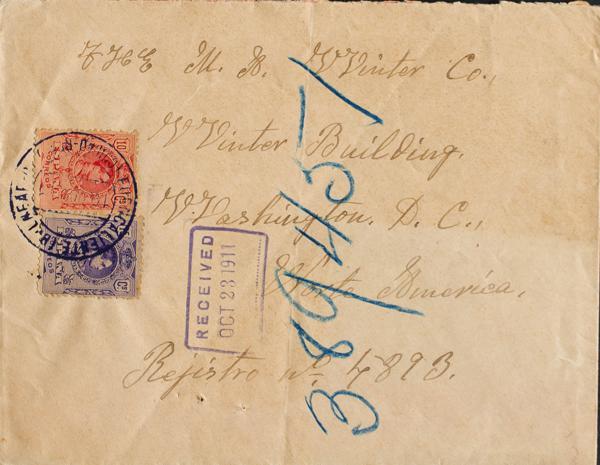 THE M. A. Winter Co.,
Winter Building.
Washington, D. C.,
Norte America,
Registro nº 4893.
389451
RECEIVED
OCT 23 1911